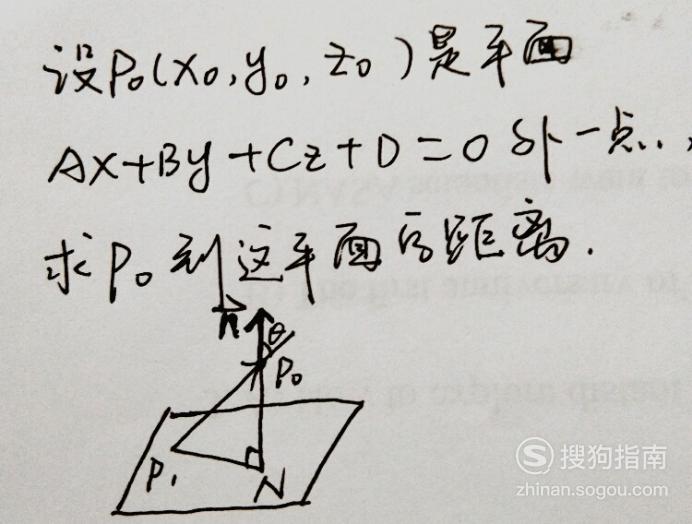 设P₀(x₀,y₀,z₀)是平面
Ax+By+Cz+D=0外一点.,
求P₀到这平面的距离.
n⃗
θ
P₀
P₁
N
搜狗指南
zhinan.sogou.com